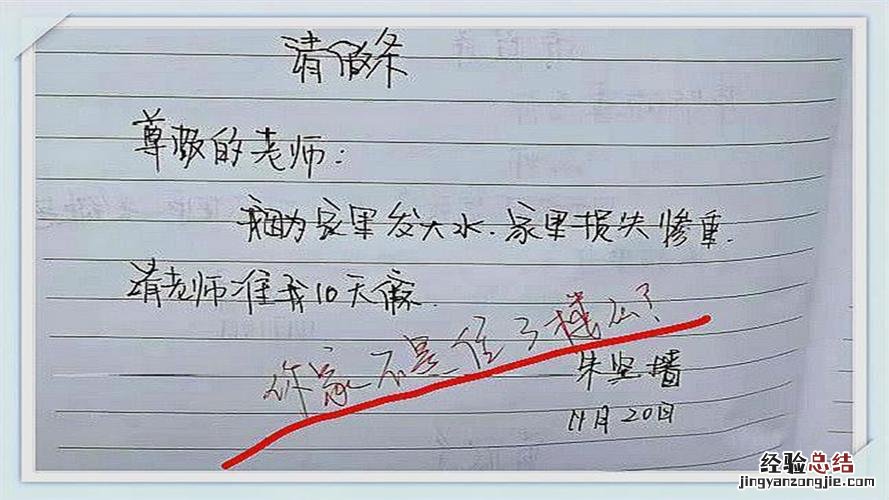 请假条
尊敬的老师:
我因为家里发大水.家里损失惨重.
请老师准我10天假.
你家不是住了楼么?
朱坚墙
11月20日
经验总结
jingyanzongjie.com